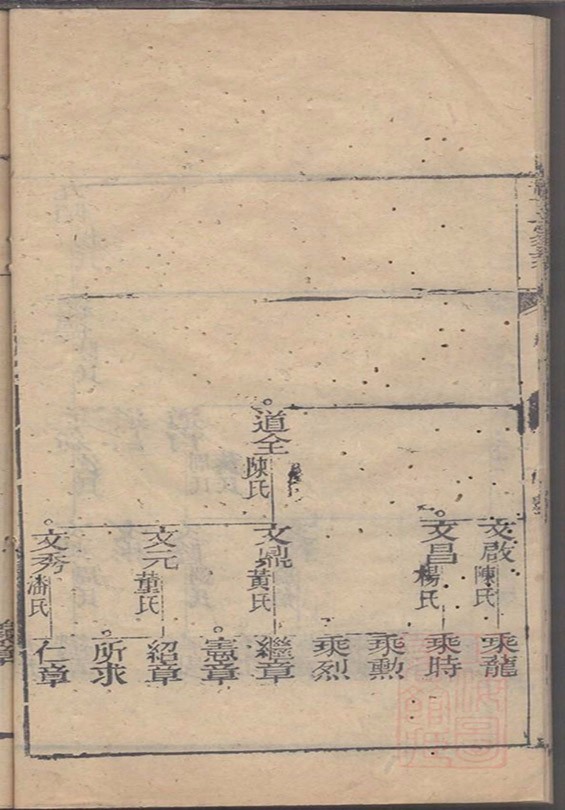 道全
陳氏
文啟
陳氏
文昌
楊氏
文鼎
黃氏
文元
董氏
文秀
潘氏
乘龍
乘時
乘勳
乘烈
繼章
憲章
紹章
所求
仁章